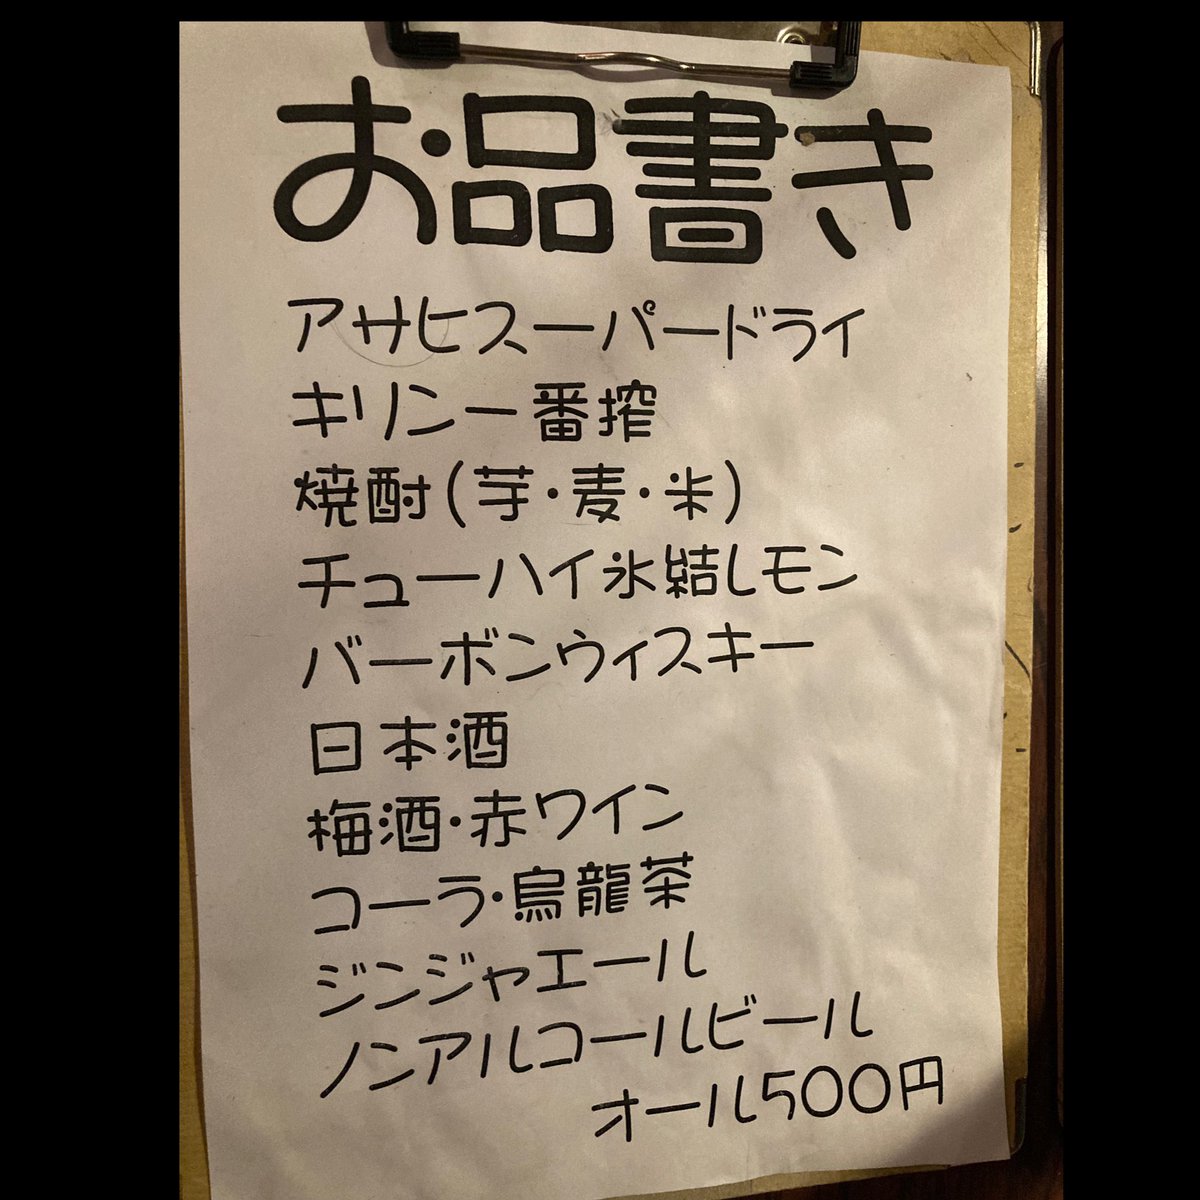 お品書き
アサヒスーパードライ
キリン一番搾
焼酎(芋・麦・米)
チューハイ氷結レモン
バーボンウィスキー
日本酒
梅酒・赤ワイン
コーラ・烏龍茶
ジンジャエール
ノンアルコールビール
オール500円